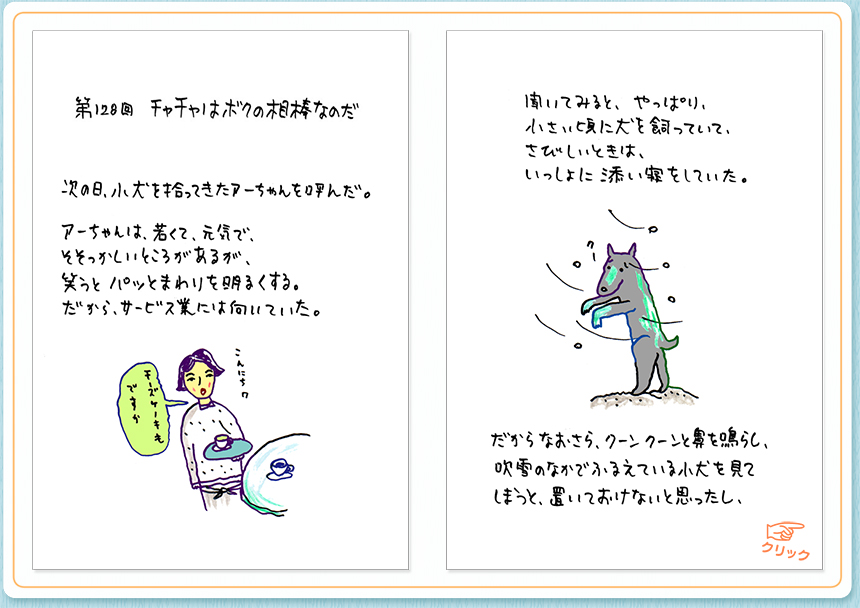 第128回 チャチャはボクの相棒なのだ
次の日、小犬を拾ってきたアーちゃんを呼んだ。
アーちゃんは、若くて、元気で、
そそっかしいところがあるが、
笑うと パッとまわりを明るくする。
だから、サービス業には向いていた。
こんにちワ
チーズケーキも
ですか
聞いてみると、やっぱり、
小さい頃に犬を飼っていて、
さびしいときは、
いっしょに添い寝をしていた。
だからなおさら、クーンクーンと鼻を鳴らし、
吹雪のなかでふるえている小犬を見て
しまうと、置いておけないと思ったし、
クリック